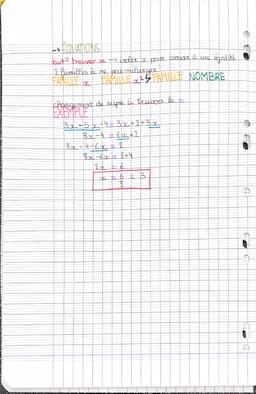 → EQUATIONS
but: trouver x → isoler x pour arriver à une égalité
2 familles à ne pas mélanger
FAMILLE x FAMILLE x² FAMILLE NOMBRE
changement de signe à travers le =
EXEMPLE
3x+5x-4=3x+2+3x
8x-4=6x+2
8x-4-6x=2
8x-6x=2+4
2x=6
x=6/2=3